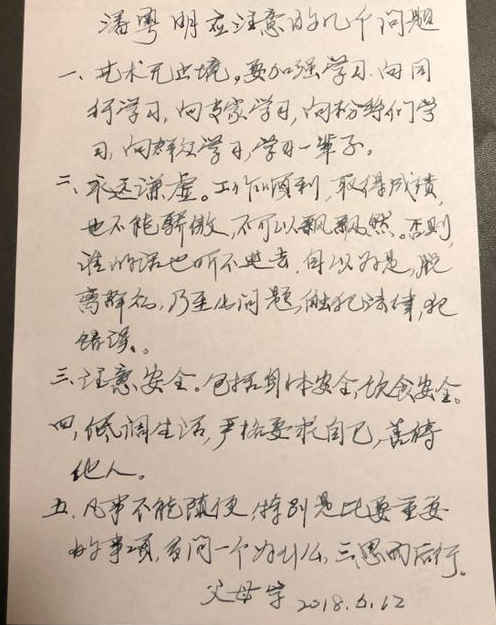 潘粤明应注意的几个问题
一、艺术无止境。要加强学习.向同
行学习,向专家学习,向粉丝们学
习,向群众学习,学习一辈子。
二、永远谦虚。工作顺利,取得成绩,
也不能骄傲,不可以飘飘然。否则,
谁的话也听不进去,自以为是,脱
离群众,乃至出问题,触犯法律,犯
错误。
三、注意安全。包括身体安全,饮食安全。
四,低调生活,严格要求自己,善待
他人。
五.凡事不能随便,特别是比较重要
的事项,多问一个为什么,三思而后行。
父母字 2018.6.12